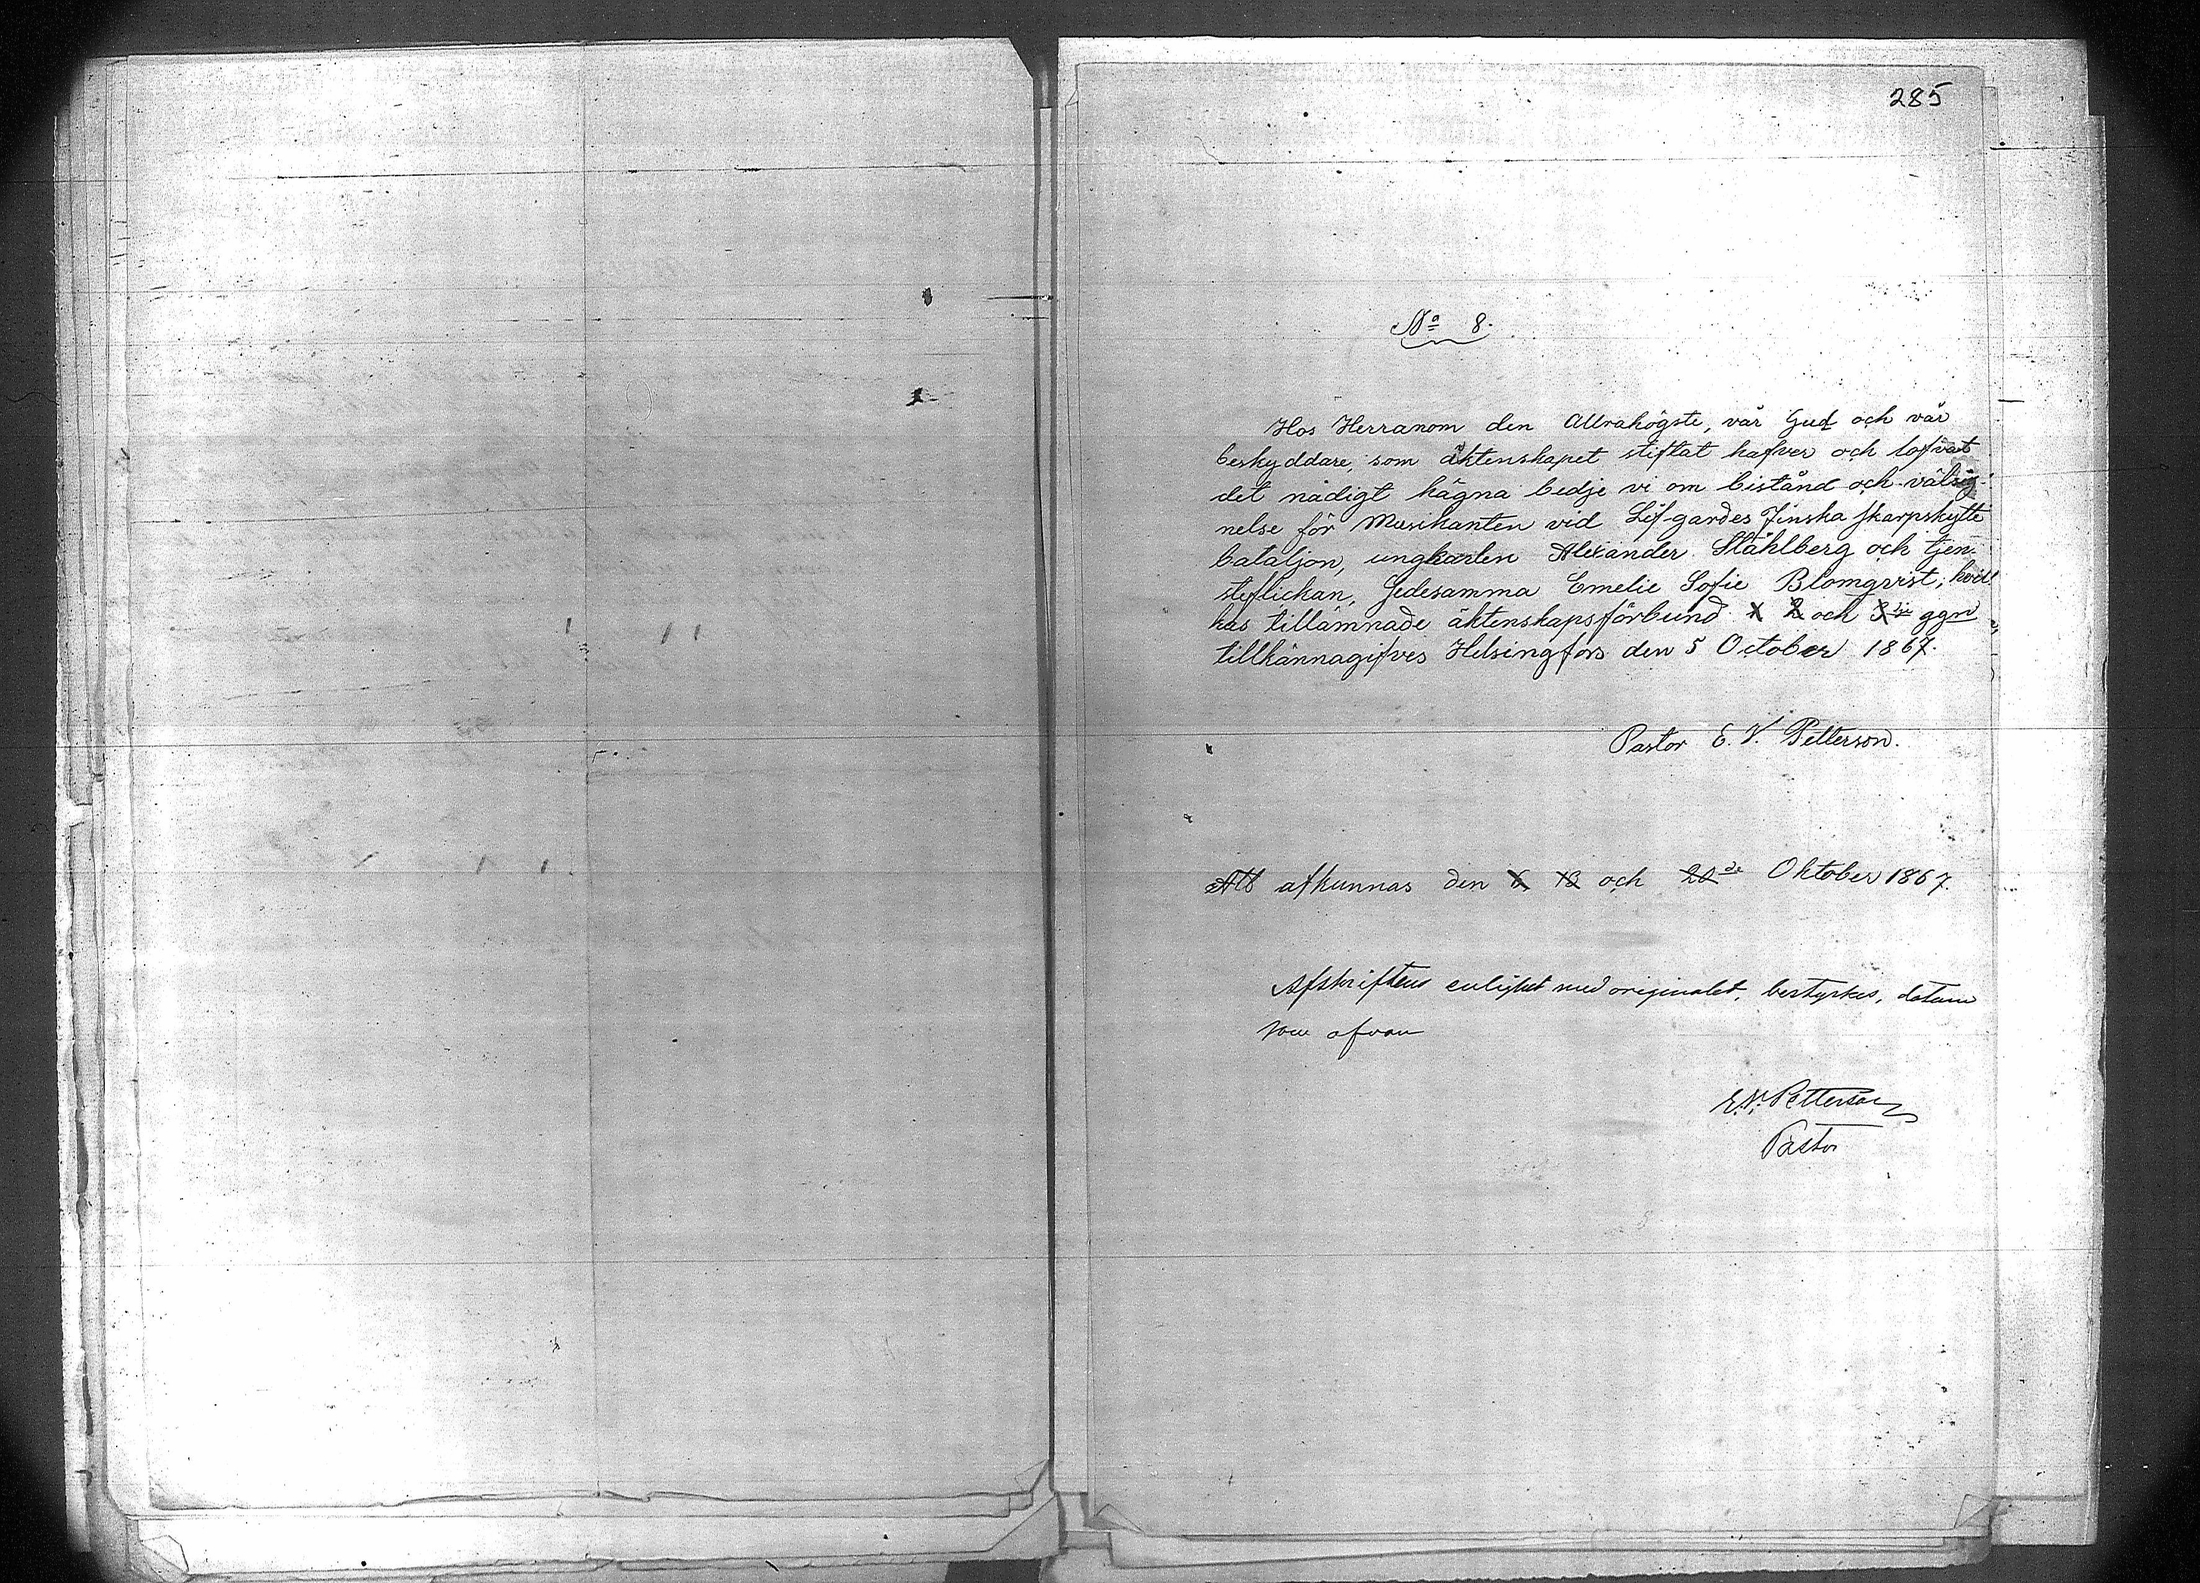 285
No 8.
Hos Herranom den Allrahögste, vår Gud och vår
beskyddare, som äktenskapet stiftat hafver och lofvat
det nådigt hägna bedje vi om bistånd och välsig-
nelse för Musikanten vid Lif-gardes Finska skarpskytte
bataljon, ungkarlen Alexander Ståhlberg och tjen-
steflickan, Gedesamma Emelie Sofie Blomqvist; hvil-
kas tillämnade äktenskapsförbund 1 2 och 3dje ggn
tillkännagifves Helsingfors den 5 October 1867.
Pastor E. V. Petterson.
Att afkunnas den 6 13 och 20de Oktober 1867.
Afskriftens enlighet med originalet, bestyrkes, datum
som ofvan
E.V. Petterson
Pastor